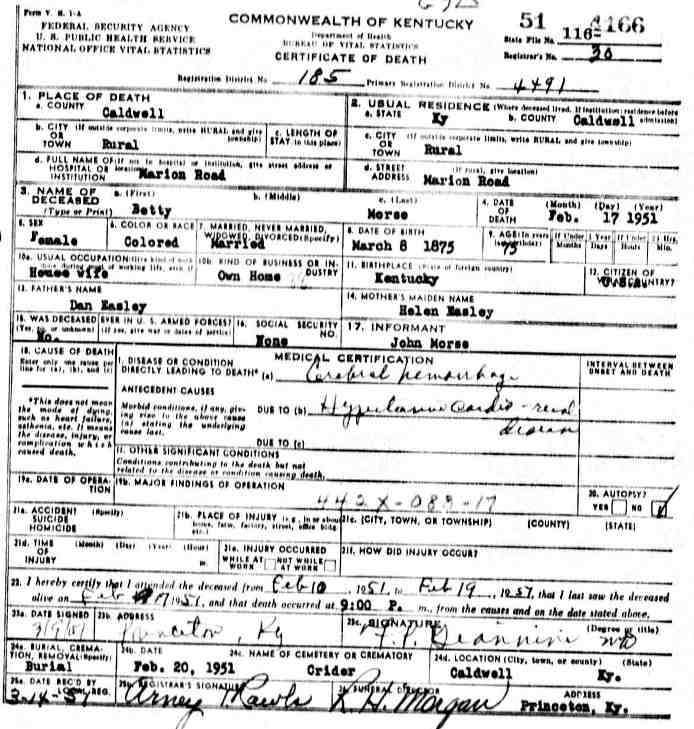 Form V. S. 1-A
FEDERAL SECURITY AGENCY
U. S. PUBLIC HEALTH SERVICE
NATIONAL OFFICE VITAL STATISTICS
COMMONWEALTH OF KENTUCKY
Department of Health
BUREAU OF VITAL STATISTICS
CERTIFICATE OF DEATH
51
State File No. 116
Registrar's No. 30
Registration District No. 185 Primary Registration District No. 4491
1. PLACE OF DEATH
a. COUNTY Caldwell
2. USUAL RESIDENCE (Where deceased lived. If institution: residence before admission)
a. STATE Ky b. COUNTY Caldwell
b. CITY (If outside corporate limits, write RURAL and give township)
OR TOWN Rural
c. LENGTH OF STAY (in this place)
c. CITY (If outside corporate limits, write RURAL and give township)
OR TOWN Rural
d. FULL NAME OF (If not in hospital or institution, give street address or location)
HOSPITAL OR INSTITUTION Marion Road
d. STREET ADDRESS (If rural, give location)
Marion Road
3. NAME OF DECEASED (Type or Print)
a. (First) Betty
b. (Middle)
c. (Last) Morse
4. DATE OF DEATH (Month) (Day) (Year)
Feb. 17 1951
5. SEX Female
6. COLOR OR RACE Colored
7. MARRIED, NEVER MARRIED, WIDOWED, DIVORCED (Specify) Married
8. DATE OF BIRTH March 8 1875
9. AGE (In years last birthday) 75
If Under 1 Year Months Days
If Under 24 Hrs. Hours Min.
10a. USUAL OCCUPATION (Give kind of work done during most of working life, even if retired) House wife
10b. KIND OF BUSINESS OR INDUSTRY Own Home
11. BIRTHPLACE (State or foreign country) Kentucky
12. CITIZEN OF WHAT COUNTRY?
13. FATHER'S NAME Dan Easley
14. MOTHER'S MAIDEN NAME Helen Easley
15. WAS DECEASED EVER IN U. S. ARMED FORCES?
(Yes, no, or unknown) (If yes, give war or dates of service) No.
16. SOCIAL SECURITY NO. None
17. INFORMANT John Morse
18. CAUSE OF DEATH
Enter only one cause per line for (a), (b), and (c)
MEDICAL CERTIFICATION
INTERVAL BETWEEN ONSET AND DEATH
I. DISEASE OR CONDITION DIRECTLY LEADING TO DEATH* (a) Cerebral hemorrhage
*This does not mean the mode of dying, such as heart failure, asthenia, etc. It means the disease, injury, or complication which caused death.
ANTECEDENT CAUSES
Morbid conditions, if any, giving rise to the above cause (a) stating the underlying cause last.
DUE TO (b) Hypertensive Cardio-renal disease
DUE TO (c)
II. OTHER SIGNIFICANT CONDITIONS
Conditions contributing to the death but not related to the disease or condition causing death.
19a. DATE OF OPERATION
19b. MAJOR FINDINGS OF OPERATION
442X-083-17
20. AUTOPSY? YES NO
21a. ACCIDENT SUICIDE HOMICIDE (Specify)
21b. PLACE OF INJURY (e.g., in or about home, farm, factory, street, office bldg. etc.)
21c. (CITY, TOWN, OR TOWNSHIP) (COUNTY) (STATE)
21d. TIME OF INJURY (Month) (Day) (Year) (Hour) m.
21e. INJURY OCCURRED WHILE AT WORK NOT WHILE AT WORK
21f. HOW DID INJURY OCCUR?
22. I hereby certify that I attended the deceased from Feb 10, 1951, to Feb 19, 1951, that I last saw the deceased
alive on Feb 17, 1951, and that death occurred at 9:00 P. m., from the causes and on the date stated above.
23a. DATE SIGNED
23b. ADDRESS Princeton, Ky
23c. SIGNATURE (Degree or title)
MD
24a. BURIAL, CREMATION, REMOVAL (Specify) Burial
24b. DATE Feb. 20, 1951
24c. NAME OF CEMETERY OR CREMATORY Crider
24d. LOCATION (City, town, or county) (State)
Caldwell Ky.
25a. DATE REC'D BY LOCAL REG. 3-14-51
25b. REGISTRAR'S SIGNATURE
FUNERAL DIRECTOR
R. H. Morgan
ADDRESS
Princeton, Ky.